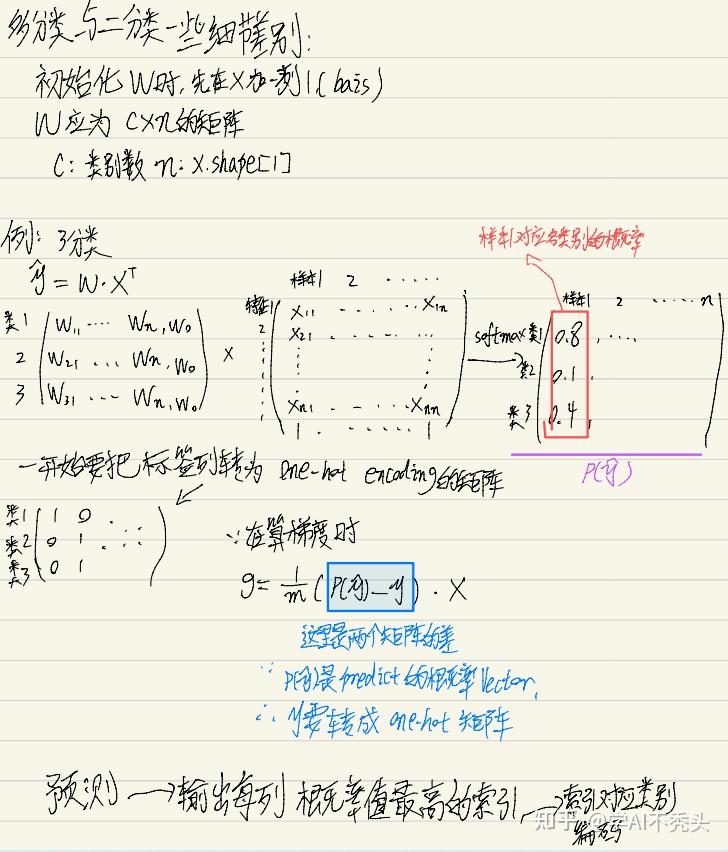 多分类与二分类一些细节差别:
初始化W时,先在X加一列1(bais)
W应为 C×n的矩阵
C: 类别数 n: X.shape[1]
例: 3分类
样本1对应各类别的概率
ŷ = W·Xᵀ
样本1 2 ......
样本1 2 ...... n
类1 W₁₁ .... Wn, W₀
2 W₂₁ ... Wn, W₀
3 W₃₁ ... Wn, W₀
×
特征1 X₁₁ ...... X₁n
2 X₂₁ ......
Xn₁ .... Xnn
1 ...... 1
softmax
类1 0.8, ....
类2 0.1,
类3 0.4,
P(ŷ)
一开始要把标签列转为 one-hot encoding的矩阵
类1 1 0 . ..
类2 0 1 . ..
类3 0 1
∵在算梯度时
g = 1/m (P(ŷ)－y) · X
这里是两个矩阵的差
∵ P(ŷ)是predict的概率Vector,
∴ y要转成 one-hot 矩阵
预测 → 输出每列 概率值最高的索引 → 索引对应类别
编码
知乎 @学AI不秃头